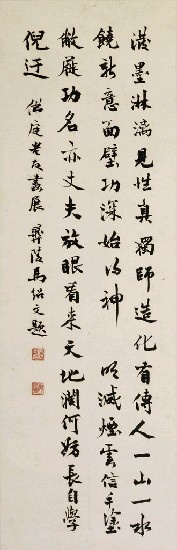 潑墨淋漓見性真獨師造化有傳人一山一水
饒新意面壁功深始得神 明滅煙雲信手塗
敝屣功名亦丈夫放眼看來天地闊何妨長自學
倪迂 庭老友畫展 彝陵馬紹文題